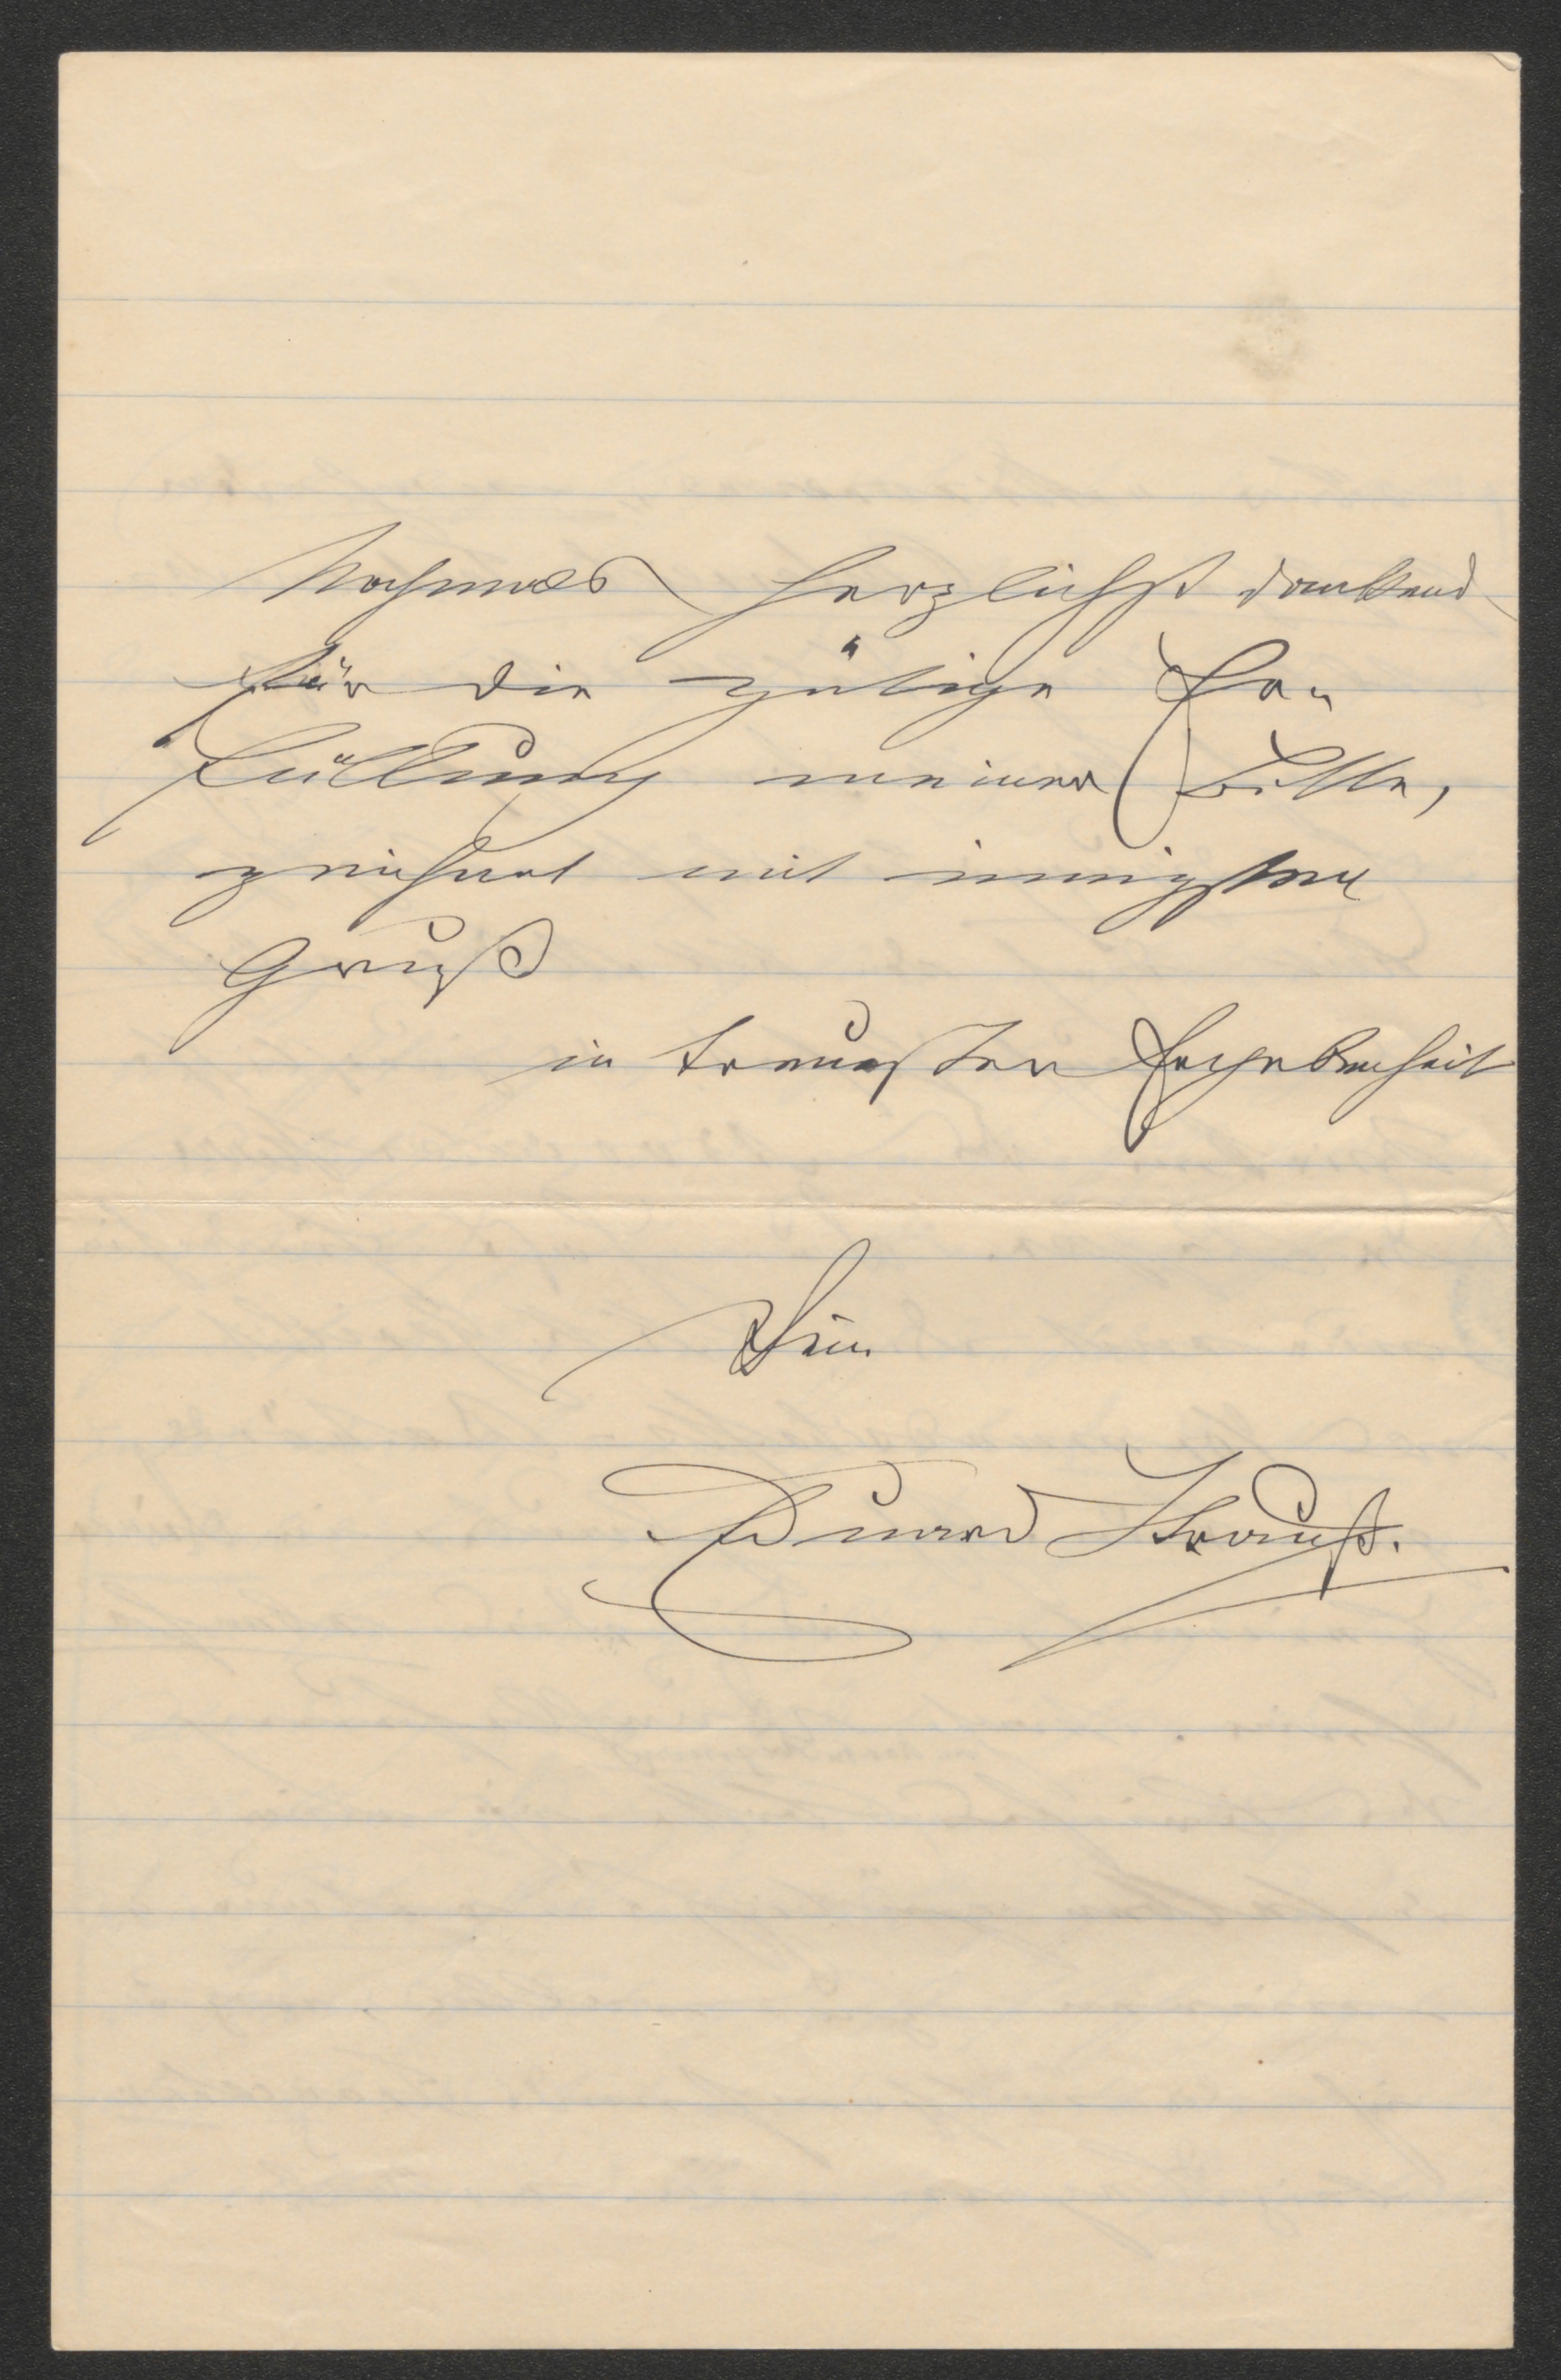 Nochmals herzlichst dankend
für die gütige Er-
füllung meiner Bitte,
zeichnet mit innigstem
Gruß
in treuester Ergebenheit
Dein
Eduard Strauß.